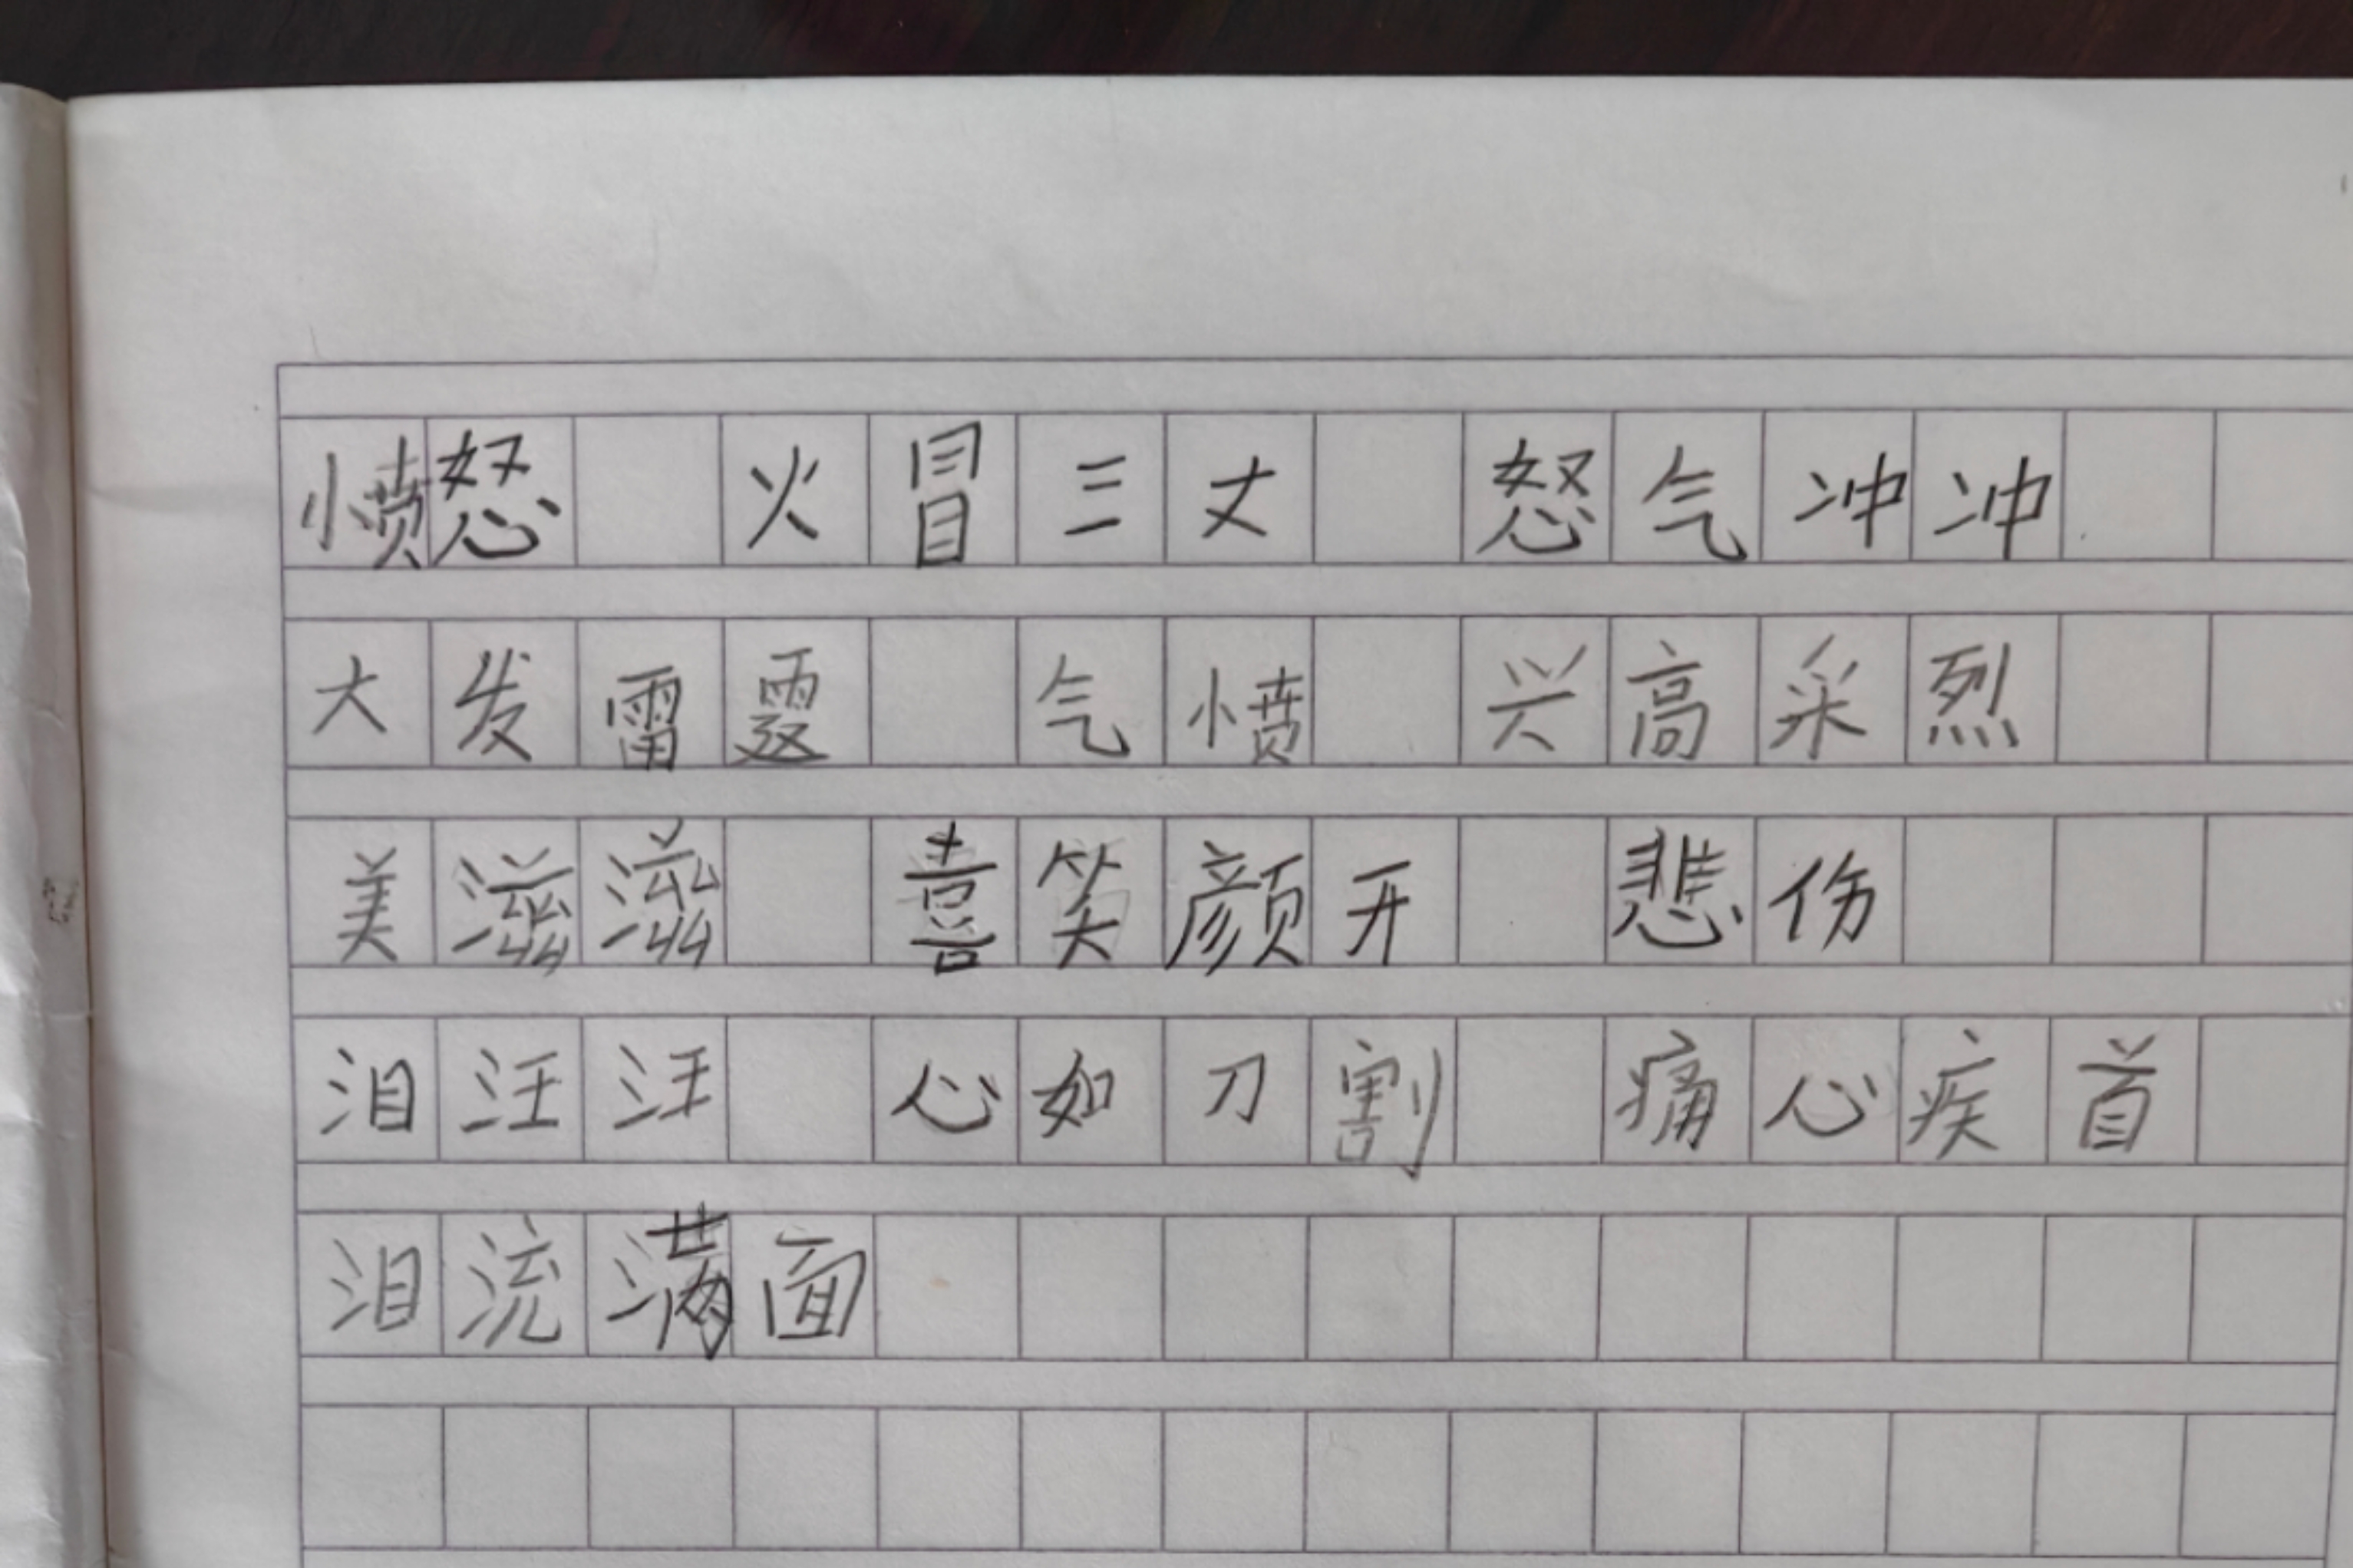 愤怒 火冒三丈 怒气冲冲
大发雷霆 气愤 兴高采烈
美滋滋 喜笑颜开 悲伤
泪汪汪 心如刀割 痛心疾首
泪流满面